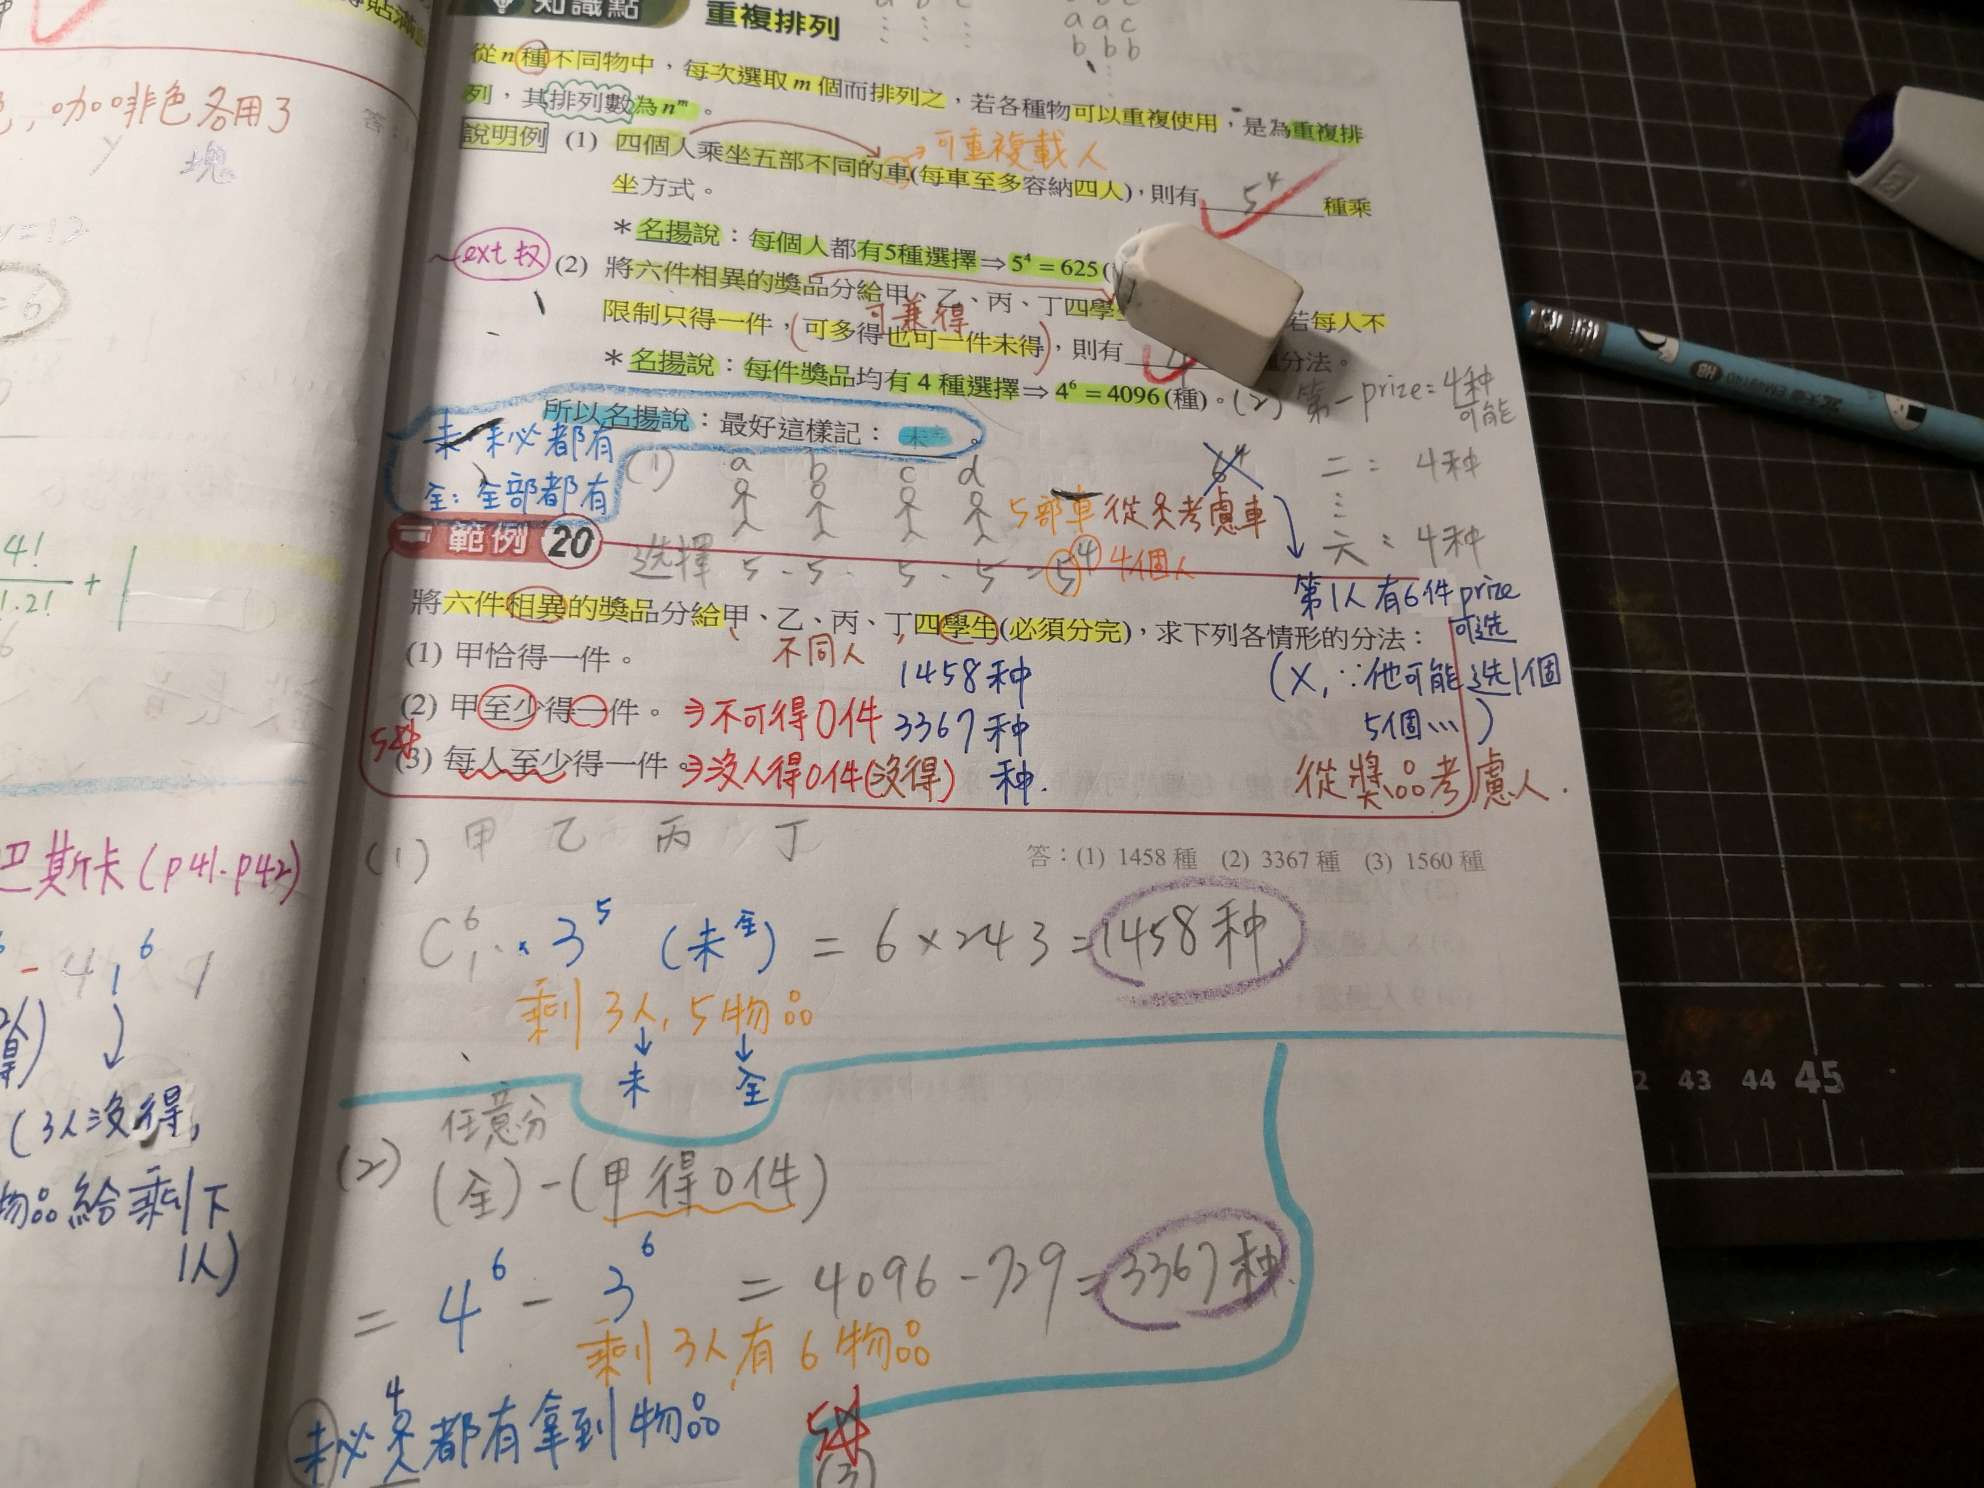 知識點 重複排列
a a c
b b b
從n種不同物中，每次選取m個而排列之，若各種物可以重複使用，是為重複排
列，其排列數為nᵐ。
可重複載人
說明例 (1) 四個人乘坐五部不同的車(每車至多容納四人)，則有 5⁴ 種乘
坐方式。
＊名揚說：每個人都有5種選擇⇒5⁴＝625(
(2) 將六件相異的獎品分給甲、乙、丙、丁四學 若每人不
可兼得
限制只得一件，(可多得也可一件未得)，則有 4 分法。
＊名揚說：每件獎品均有4種選擇⇒4⁶＝4096(種)。
(2) 第一prize=4种
可能
二：4种
⋮
六：4种
所以名揚說：最好這樣記：
未必都有
全：全部都有
(1) a b c d
6⁴
5部車 從人考慮車
選擇 5．5．5．5＝5⁴ 4個人
範例 20
第1人有6件prize
可选
將六件相異的獎品分給甲、乙、丙、丁四學生(必須分完)，求下列各情形的分法：
不同人
(1) 甲恰得一件。 1458种
(2) 甲至少得一件。⇒不可得0件 3367种
(3) 每人至少得一件。⇒沒人得0件(沒得) 种.
(X, ∵他可能选1個
5個… )
從獎品考慮人.
答：(1) 1458種 (2) 3367種 (3) 1560種
(1) 甲 乙 丙 丁
C⁶₁ × 3⁵ (未全) = 6×243=1458种
剩3人, 5物品
↓ ↓
未 全
(2) 任意分
(全)-(甲得0件)
= 4⁶ - 3⁶ = 4096-729=3367种.
剩3人有6物品
未必4人都有拿到物品
(3)
咖啡色各用了
y 塊
答：
=12
=6
4!
2! + 1
巴斯卡(p41-p42)
- 4 1⁶
(3人沒得,
物品給剩下
1人)
43 44 45